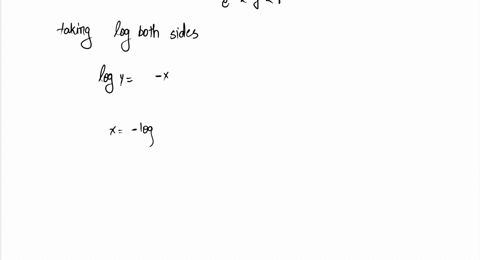 taking log both sides
log y = -x
x = -log